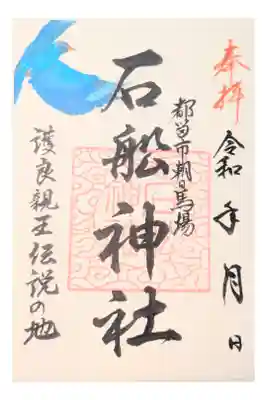 奉拝
令和 年 月 日
都留市朝日馬場
石船神社
護良親王伝説の地